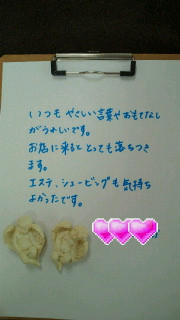 いつも やさしい言葉やおもてなし
がうれしいです。
お店に来ると とっても落ちつき
ます。
エステ、シェービングも気持ち
よかったです。